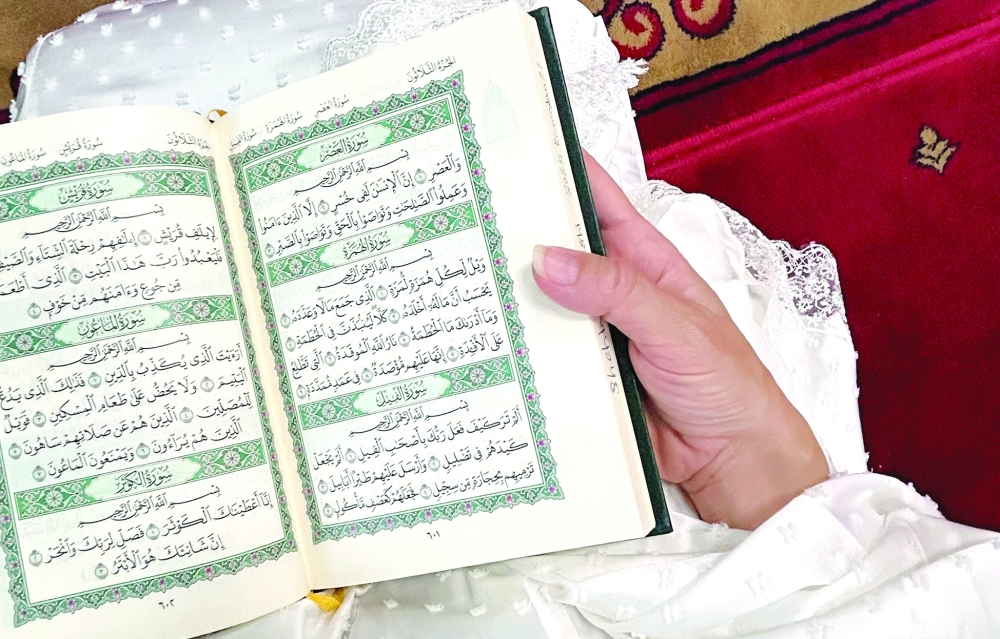 الجُزْءُ الثَّلَاثُونَ سُورَةُ العَصْرِ سُورَةُ الهُمَزَةِ سُورَةُ الفِيلِ
سُورَةُ العَصْرِ
بِسْمِ اللَّهِ الرَّحْمَٰنِ الرَّحِيمِ
وَالْعَصْرِ ١ إِنَّ الْإِنسَٰنَ لَفِي خُسْرٍ ٢ إِلَّا الَّذِينَ ءَامَنُوا
وَعَمِلُوا الصَّٰلِحَٰتِ وَتَوَاصَوْا بِالْحَقِّ وَتَوَاصَوْا بِالصَّبْرِ ٣
سُورَةُ الهُمَزَةِ
بِسْمِ اللَّهِ الرَّحْمَٰنِ الرَّحِيمِ
وَيْلٌ لِّكُلِّ هُمَزَةٍ لُّمَزَةٍ ١ الَّذِي جَمَعَ مَالًا وَعَدَّدَهُ ٢
يَحْسَبُ أَنَّ مَالَهُ أَخْلَدَهُ ٣ كَلَّا لَيُنبَذَنَّ فِي الْحُطَمَةِ ٤
وَمَا أَدْرَىٰكَ مَا الْحُطَمَةُ ٥ نَارُ اللَّهِ الْمُوقَدَةُ ٦ الَّتِي تَطَّلِعُ
عَلَى الْأَفْـِٔدَةِ ٧ إِنَّهَا عَلَيْهِم مُّؤْصَدَةٌ ٨ فِي عَمَدٍ مُّمَدَّدَةٍ ٩
سُورَةُ الفِيلِ
بِسْمِ اللَّهِ الرَّحْمَٰنِ الرَّحِيمِ
أَلَمْ تَرَ كَيْفَ فَعَلَ رَبُّكَ بِأَصْحَٰبِ الْفِيلِ ١ أَلَمْ يَجْعَلْ
كَيْدَهُمْ فِي تَضْلِيلٍ ٢ وَأَرْسَلَ عَلَيْهِمْ طَيْرًا أَبَابِيلَ ٣
تَرْمِيهِم بِحِجَارَةٍ مِّن سِجِّيلٍ ٤ فَجَعَلَهُمْ كَعَصْفٍ مَّأْكُولٍ ٥
٦٠١
الجُزْءُ الثَّلَاثُونَ سُورَةُ قُرَيْشٍ سُورَةُ المَاعُونِ
سُورَةُ قُرَيْشٍ
بِسْمِ اللَّهِ الرَّحْمَٰنِ الرَّحِيمِ
لِإِيلَٰفِ قُرَيْشٍ ١ إِۦلَٰفِهِمْ رِحْلَةَ الشِّتَاءِ وَالصَّيْفِ
فَلْيَعْبُدُوا رَبَّ هَٰذَا الْبَيْتِ ٣ الَّذِي
مِّن جُوعٍ وَءَامَنَهُم مِّنْ خَوْفٍ ٤
سُورَةُ المَاعُونِ
بِسْمِ اللَّهِ الرَّحْمَٰنِ الرَّحِيمِ
أَرَءَيْتَ الَّذِي يُكَذِّبُ بِالدِّينِ ١ فَذَٰلِكَ الَّذِي يَدُعُّ
الْيَتِيمَ ٢ وَلَا يَحُضُّ عَلَىٰ طَعَامِ الْمِسْكِينِ ٣ فَوَيْلٌ
لِّلْمُصَلِّينَ ٤ الَّذِينَ هُمْ عَن صَلَاتِهِمْ سَاهُونَ ٥
الَّذِينَ هُمْ يُرَاءُونَ ٦ وَيَمْنَعُونَ الْمَاعُونَ ٧
سُورَةُ الكَوْثَرِ
بِسْمِ اللَّهِ الرَّحْمَٰنِ الرَّحِيمِ
إِنَّا أَعْطَيْنَٰكَ الْكَوْثَرَ ١ فَصَلِّ لِرَبِّكَ وَانْحَرْ ٢
إِنَّ شَانِئَكَ هُوَ الْأَبْتَرُ ٣
٦٠٢